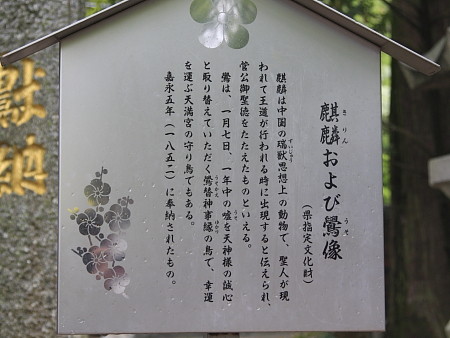 麒麟および鷽像
きりん
うそ
（県指定文化財）
麒麟は中国の瑞獣思想上の動物で、聖人が現
ずいじゅう
われて王道が行われる時に出現すると伝えられ、
菅公御聖徳をたたえたものといえる。
鷽は、一月七日、一年中の嘘を天神様の誠心
うそ
と取り替えていただく鷽替神事縁の鳥で、幸運
うそかえ
ゆかり
を運ぶ天満宮の守り鳥でもある。
嘉永五年（一八五二）に奉納されたもの。
献納